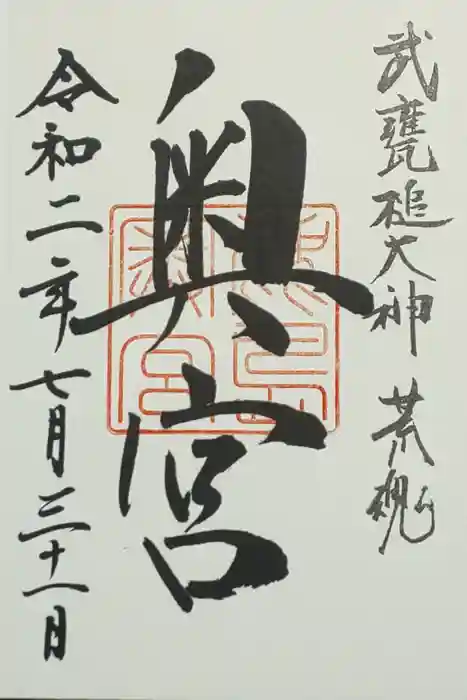 武甕槌大神 荒魂
奥宮
鹿島
奥宮
令和二年七月三十一日